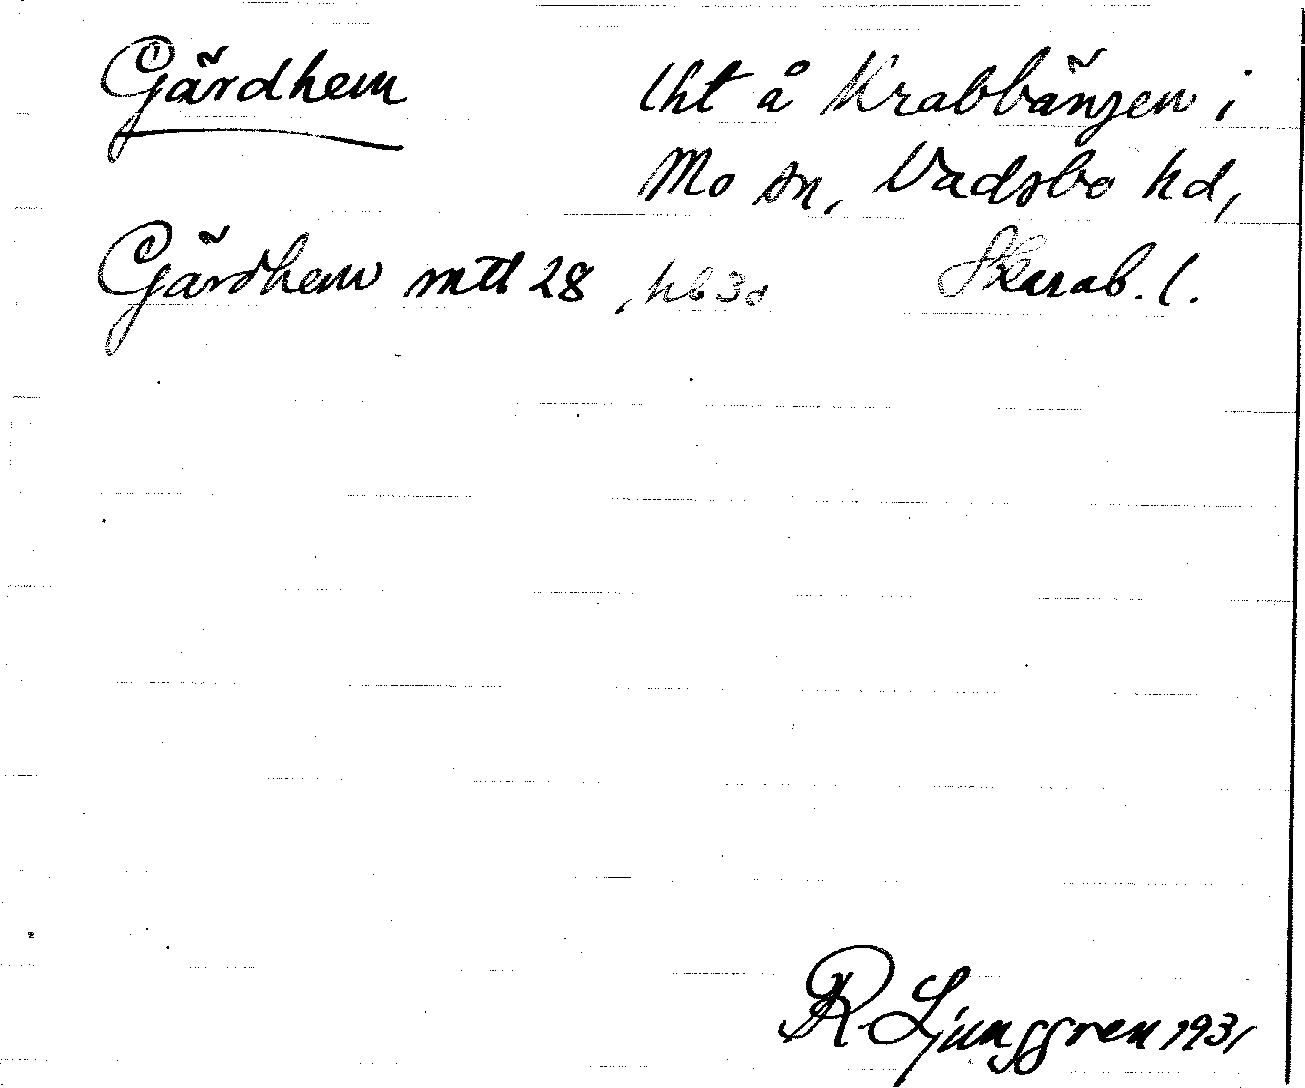 Gärdhem
lht å Krabbängen i
Mo sn, Vadsbo hd,
Skarab. l.
Gärdhem mtl 28, hb 30
R Ljunggren 1931